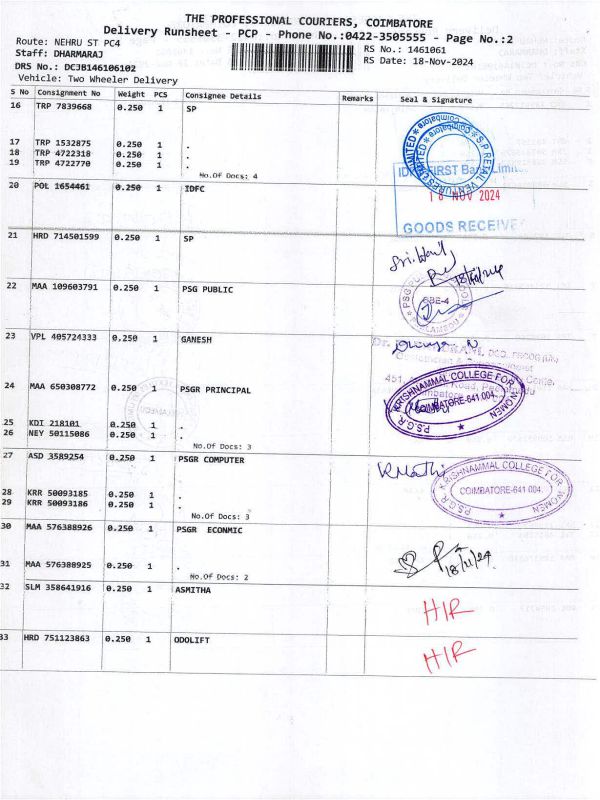 THE PROFESSIONAL COURIERS, COIMBATORE
Delivery Runsheet - PCP - Phone No.:0422-3505555 - Page No.:2
Route: NEHRU ST PC4
RS No.: 1461061
Staff: DHARMARAJ
RS Date: 18-Nov-2024
DRS No.: DCJB146106102
Vehicle: Two Wheeler Delivery
S No Consignment No Weight PCS Consignee Details Remarks Seal & Signature
16 TRP 7839668 0.250 1 SP
17 TRP 1532875 0.250 1 .
18 TRP 4722318 0.250 1 .
19 TRP 4722770 0.250 1 .
No.Of Docs: 4
S.P RETAIL VENTURES LIMITED
Coimbatore
20 POL 1654461 0.250 1 IDFC
IDFC FIRST Bank Limited
18 NOV 2024
GOODS RECEIVE
21 HRD 714501599 0.250 1 SP
18/11/24
22 MAA 109603791 0.250 1 PSG PUBLIC
23 VPL 405724333 0.250 1 GANESH
24 MAA 650308772 0.250 1 PSGR PRINCIPAL
P.S.G.R. KRISHNAMMAL COLLEGE FOR WOMEN
COIMBATORE-641 004.
25 KDI 218101 0.250 1 .
26 NEY 50115086 0.250 1 .
No.Of Docs: 3
27 ASD 3589254 0.250 1 PSGR COMPUTER
P.S.G.R. KRISHNAMMAL COLLEGE FOR WOMEN
COIMBATORE-641 004.
28 KRR 50093185 0.250 1 .
29 KRR 50093186 0.250 1 .
No.Of Docs: 3
30 MAA 576388926 0.250 1 PSGR ECONMIC
18/11/24
31 MAA 576388925 0.250 1 .
No.Of Docs: 2
32 SLM 358641916 0.250 1 ASMITHA
HIR
33 HRD 751123863 0.250 1 ODOLIFT
HIR